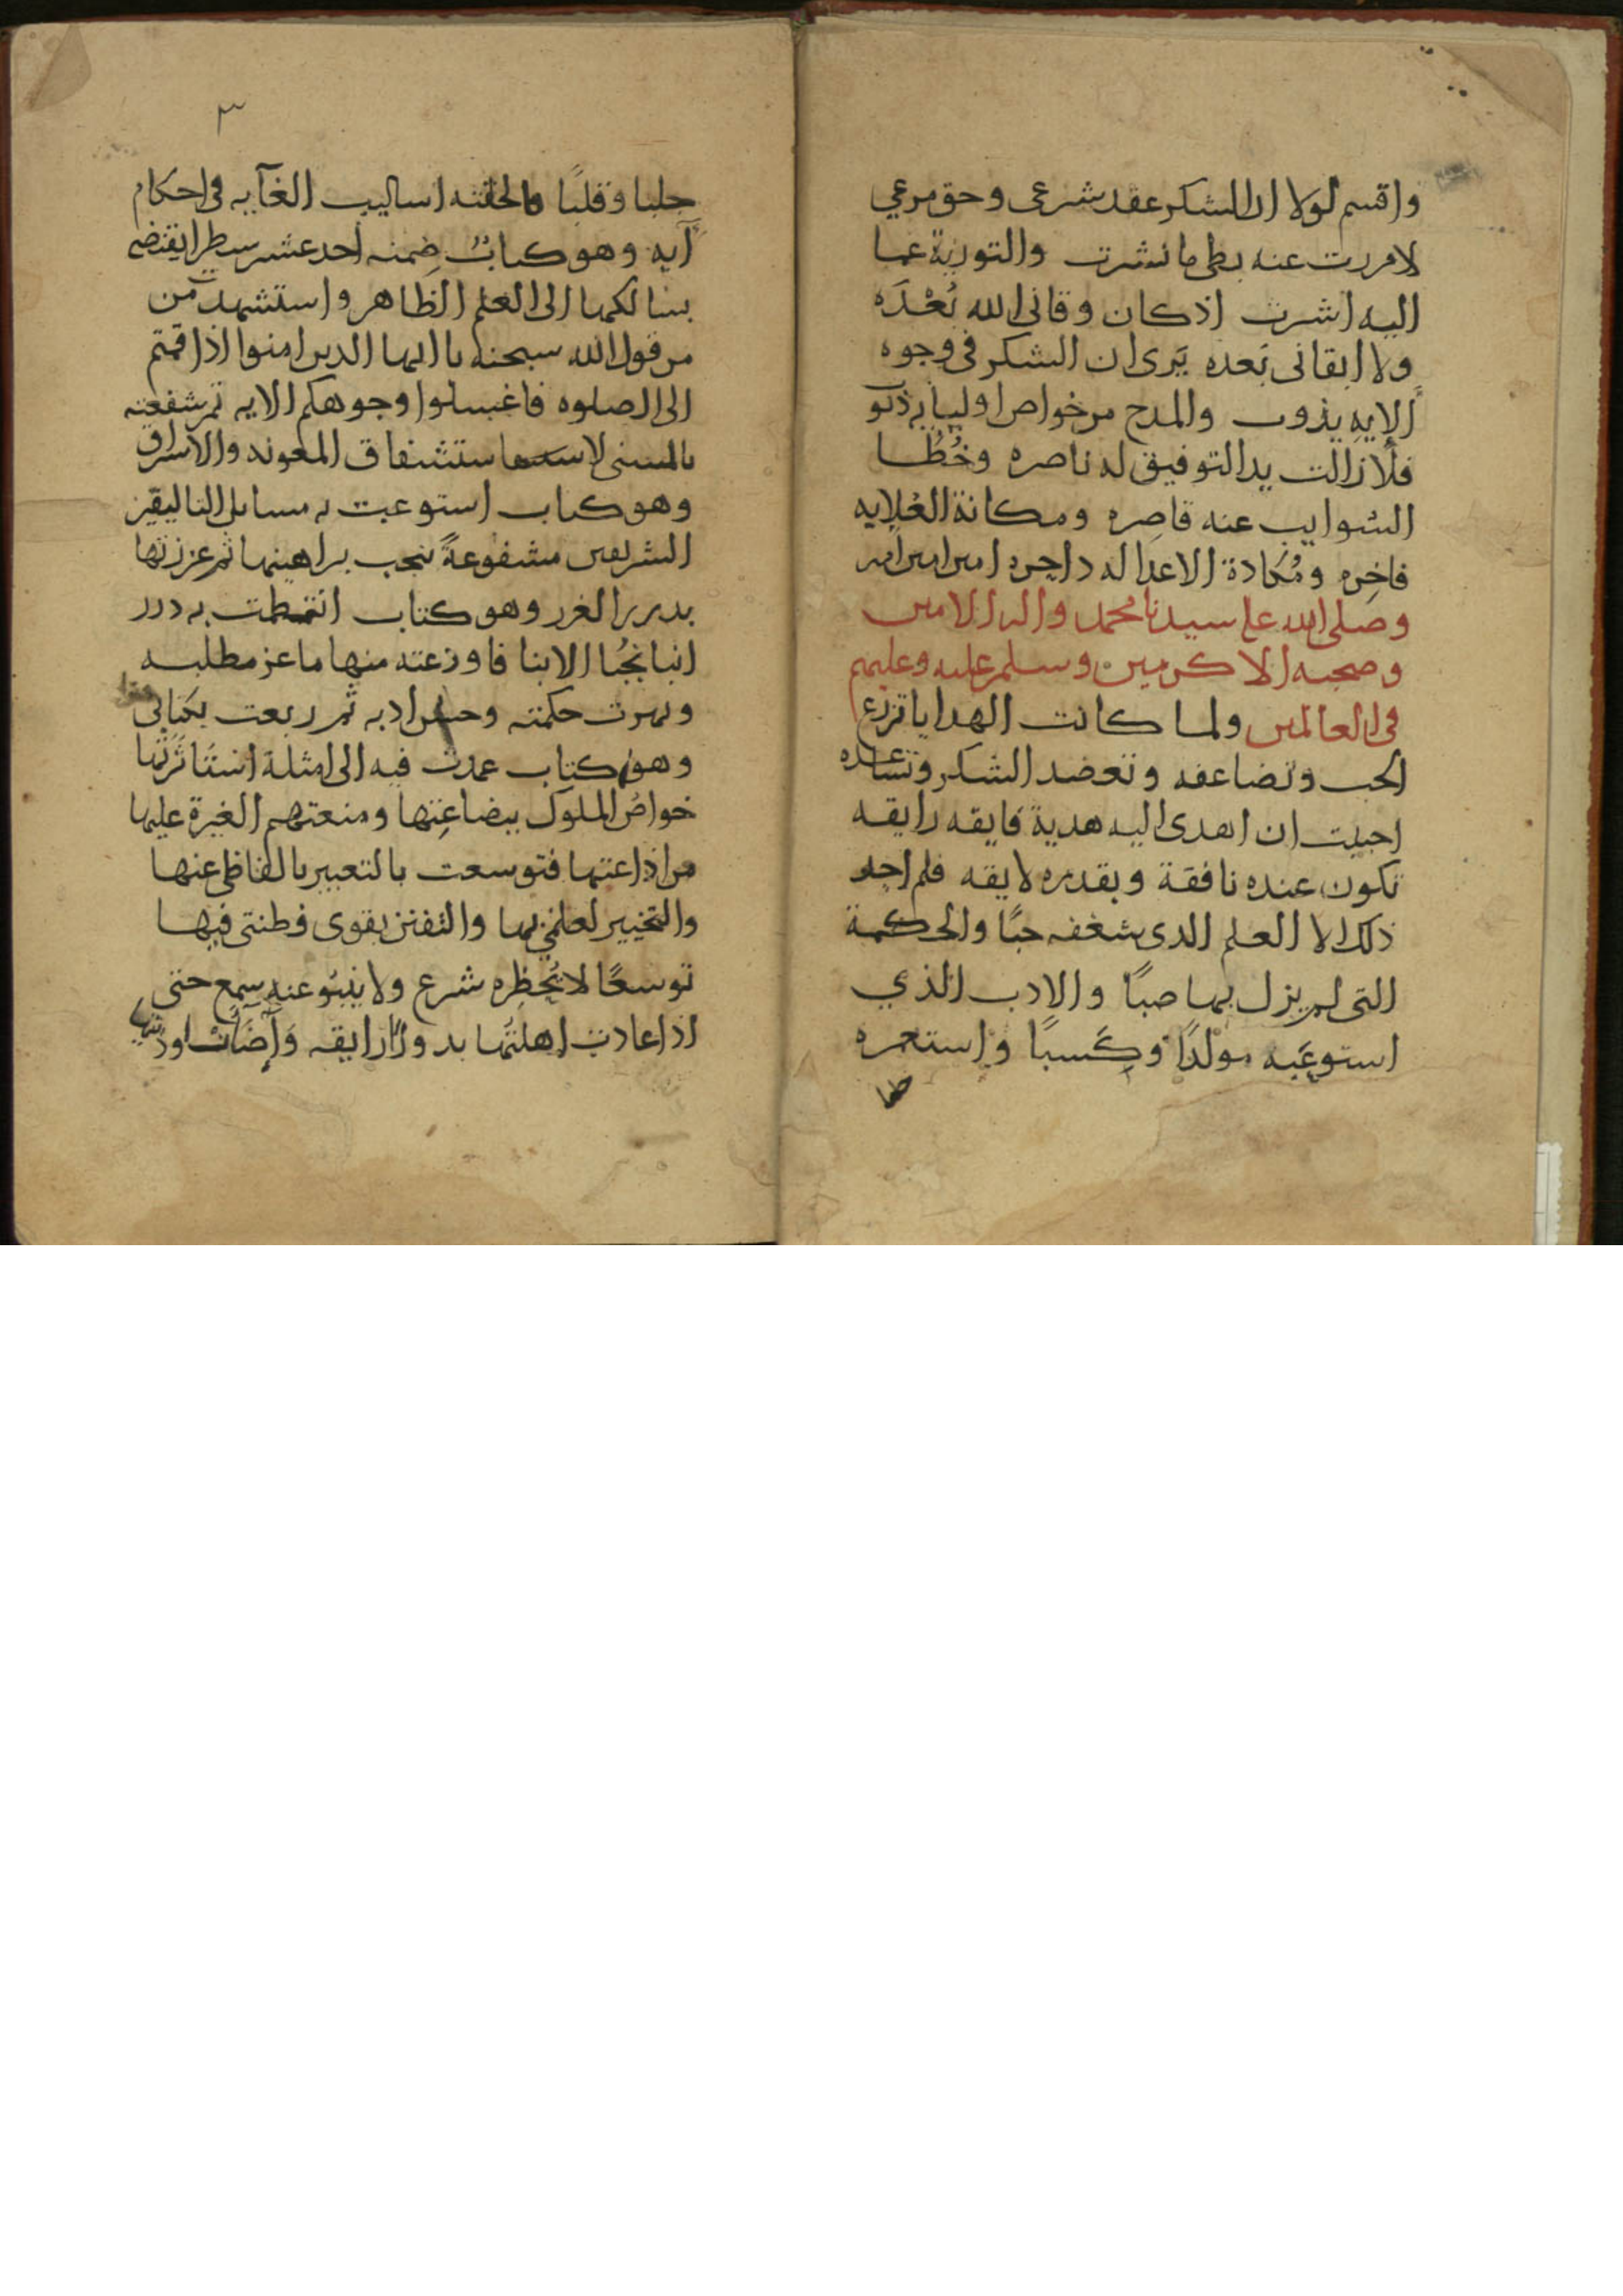 واقسم لولا ان الشكر عقد شرعى وحق مرعي
لامررت عنه بطى ما نشرت والتورية عما
اليه اشرت اذ كان وقانى الله بُعْدَه
ولا ابقانى بَعده يَرى ان الشكر فى وجوه
الايه يذوب والمدح من خواص اوليايه ذنو
فلا زالت يد التوفيق له ناصره وخُطُا
الشوايب عنه قاصِره ومكانة العُلايه
فاخِره الاعدا له داحره امين امين امين
وصلى الله على سيدنا محمد واله الامين
وصحبه الاكرمين وسلم عليه وعليهم
فى العالمين ولما كانت الهدايا تزرع
الحب وتضاعفه وتعضد الشكر وتساعده
احببت ان اهدى اليه هدية فايقه رايقه
تكون عنده نافقة وبقدره لايقه فلم اجد
ذلك الا العلم الذى شغفه حبًا والحكمة
التى لم يزل بها صبًا والادب الذي
استوعَبه مولدًا وكَسبًا واستعمره
٣
جلبا وقلبًا اساليب الغآيه فى احكام
آيه وهو كتابٌ ضِمنه احد عشر سطرا يقتضى
الى العلم الظاهر واستشهدت من
من قول الله سبحنه يا ايها الذين امنوا اذا قمتم
الى الصلوه فاغسلوا وجوهكم الايه ثم شفعته
بالمسنى
وهو كتاب استوعبت به مسايل التاليقين
الشريفين مشفوعةً ببراهينها ثم عززتها
بدرر الغرر وهو كتاب انتظمت به درر
انبا نُجبُا الابنا فاودعته منها ما عز مطلبه
وبهرت حكمته وحسن ادبه ثم ربعت بكتابى
وهو كتاب عمدت فيه الى امثلة استاثرتها
خواصُ الملوك ببضاعتِها ومنعتهم الغيرة عليها
من اذاعتها فتوسعت بالتعبير بالفاظى عنها
بها والتفنن بقوى فطنتى فيها
توسعًا لا يُحظِره شرع ولا ينبُو عنه سمع حتى
اذا عادت اهلتُها بدورًا رايقه